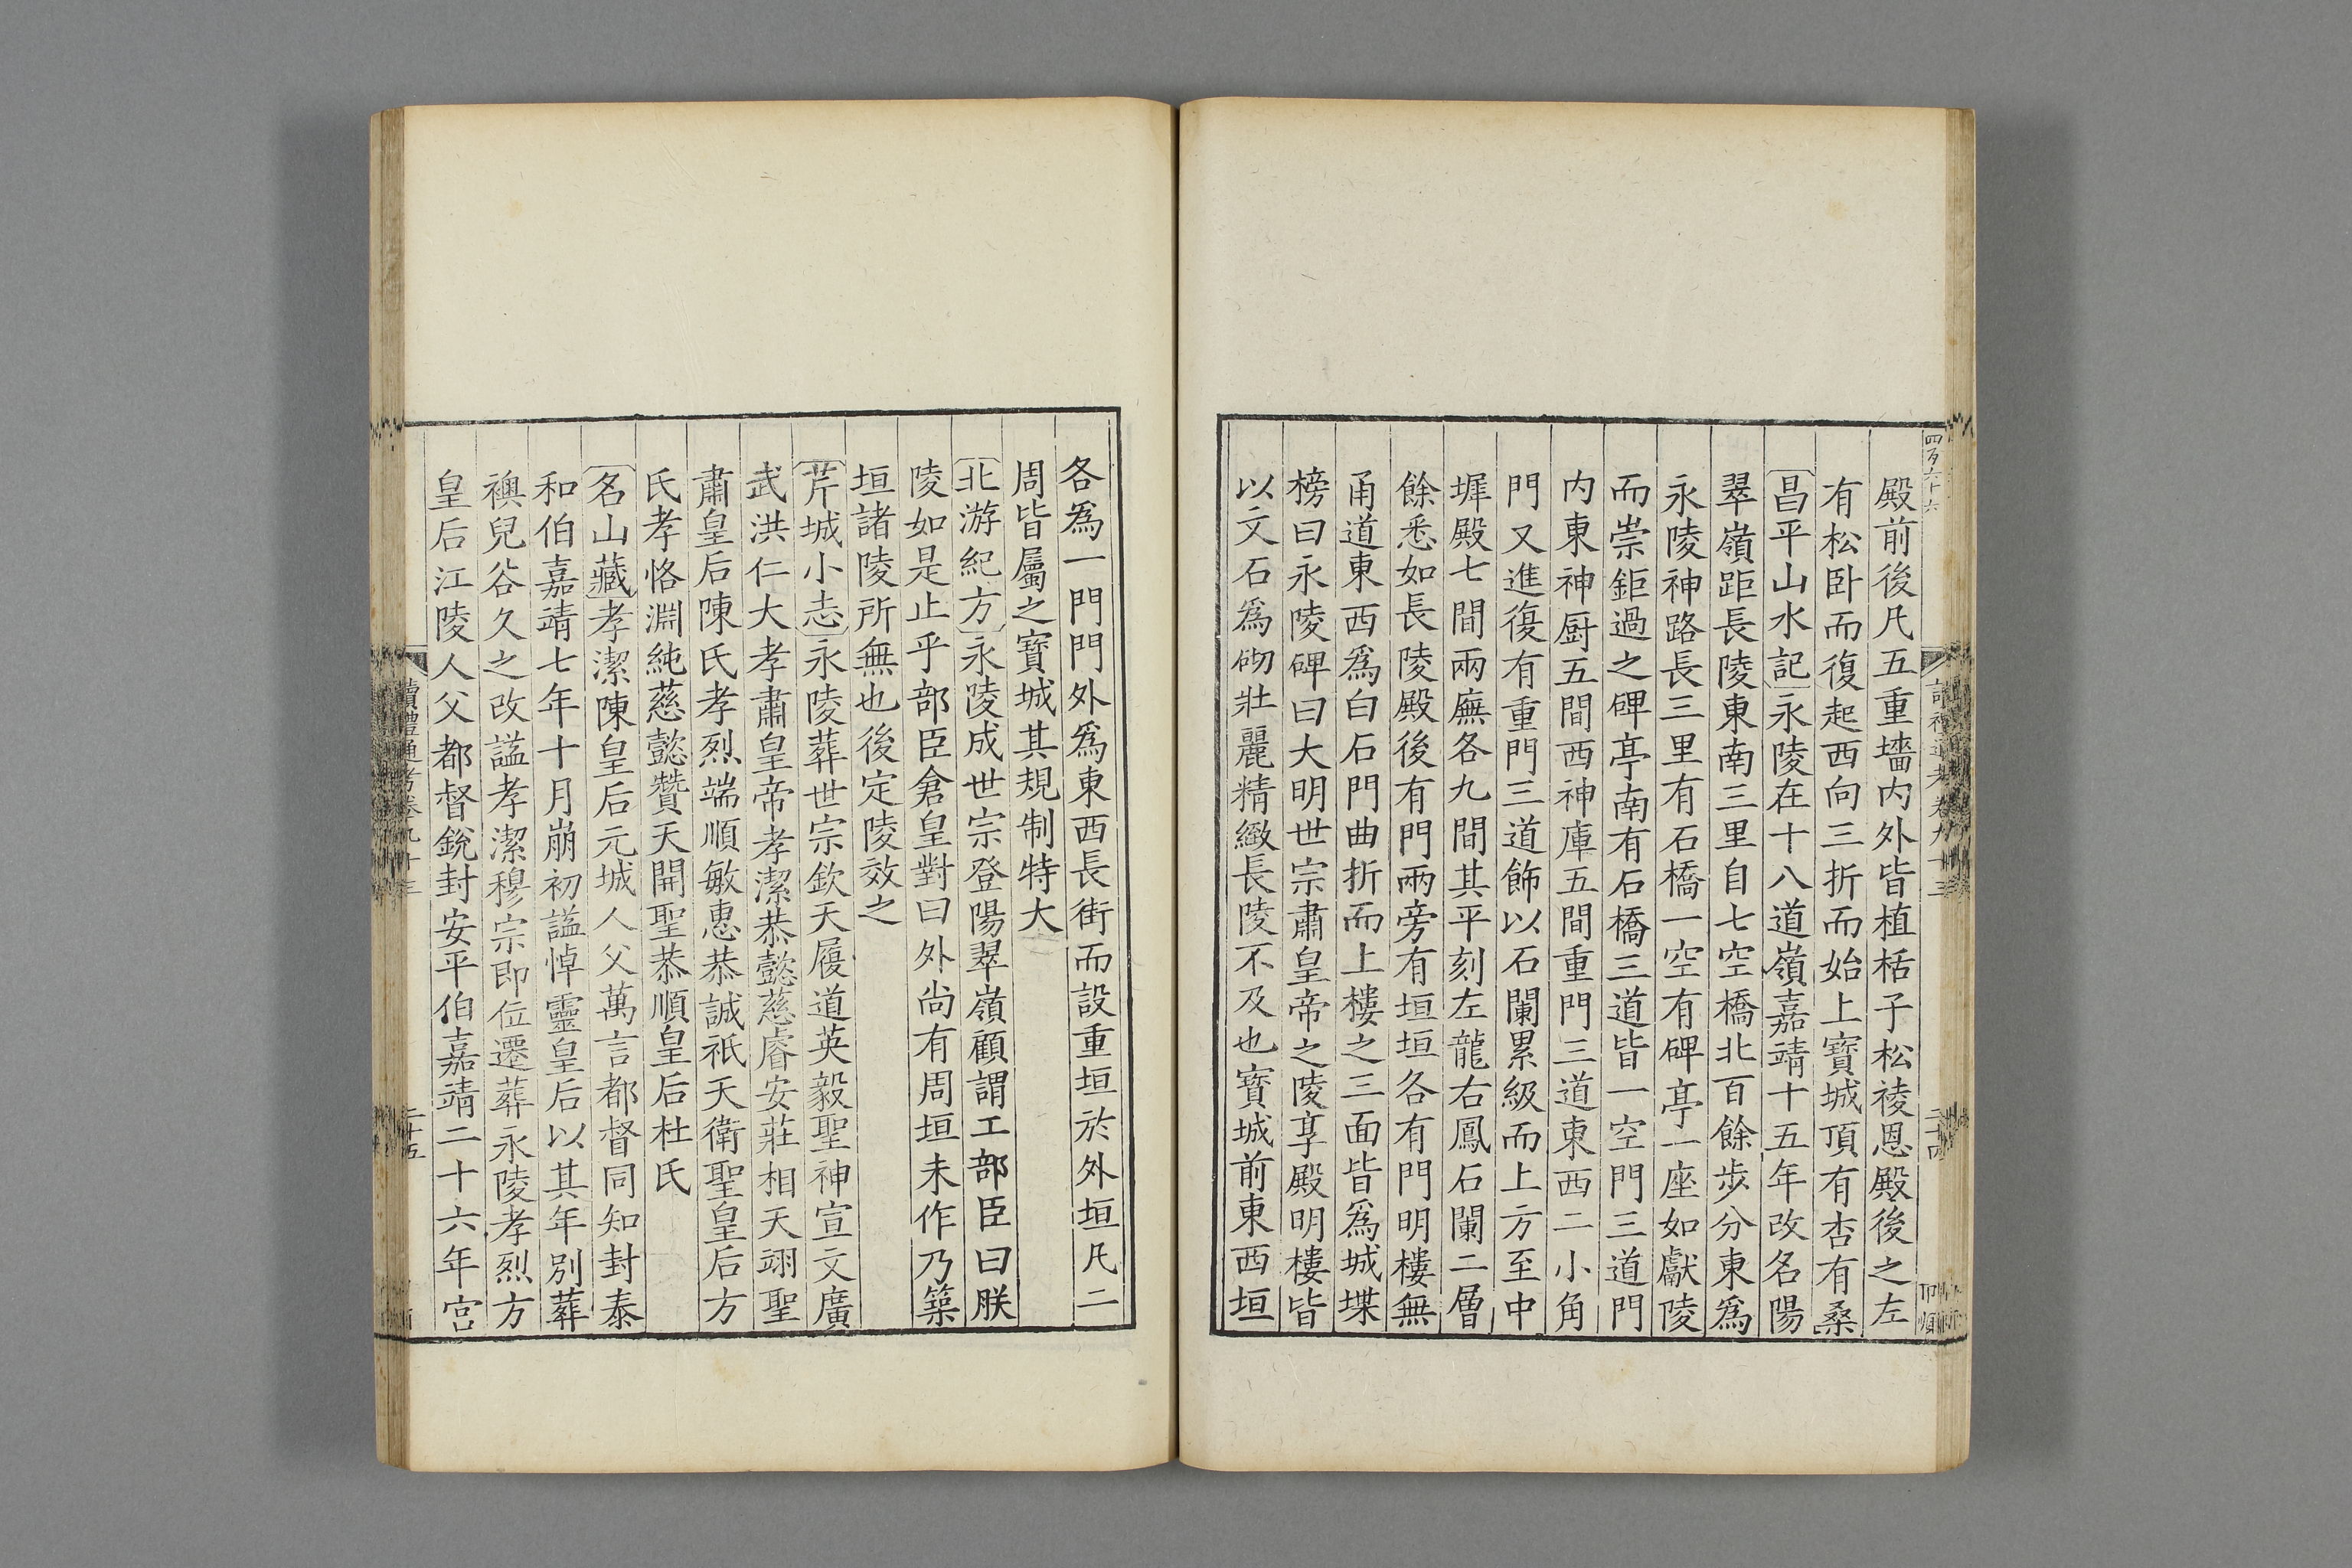 殿前後凡五重墻内外皆植栝子松祾恩殿後之左
有松卧而復起西向三折而始上寶城頂有杏有桑
昌平山水記永陵在十八道嶺嘉靖十五年改名陽
翠嶺距長陵東南三里自七空橋北百餘步分東爲
永陵神路長三里有石橋一空有碑亭一座如獻陵
而崇鉅過之碑亭南有石橋三道皆一空門三道門
内東神厨五間西神庫五間重門三道東西二小角
門又進復有重門三道飾以石闌累級而上方至中
墀殿七間兩廡各九間其平刻左龍右鳳石闌二層
餘悉如長陵殿後有門兩旁有垣垣各有門明樓無
甬道東西爲白石門曲折而上樓之三面皆爲城堞
榜曰永陵碑曰大明世宗肅皇帝之陵享殿明樓皆
以文石爲砌壯麗精緻長陵不及也寶城前東西垣
各爲一門門外爲東西長街而設重垣於外垣凡二
周皆屬之寶城其規制特大
北游紀方永陵成世宗登陽翠嶺顧謂工部臣曰朕
陵如是止乎部臣倉皇對曰外尚有周垣未作乃築
垣諸陵所無也後定陵效之
芹城小志永陵葬世宗欽天履道英毅聖神宣文廣
武洪仁大孝肅皇帝孝潔恭懿慈睿安莊相天翊聖
肅皇后陳氏孝烈端順敏惠恭誠祇天衛聖皇后方
氏孝恪淵純慈懿贊天開聖恭順皇后杜氏
名山藏孝潔陳皇后元城人父萬言都督同知封泰
和伯嘉靖七年十月崩初謚悼靈皇后以其年別葬
襖兒谷久之改謚孝潔穆宗即位遷葬永陵孝烈方
皇后江陵人父都督銳封安平伯嘉靖二十六年宮
讀禮通考卷九十三
二十五